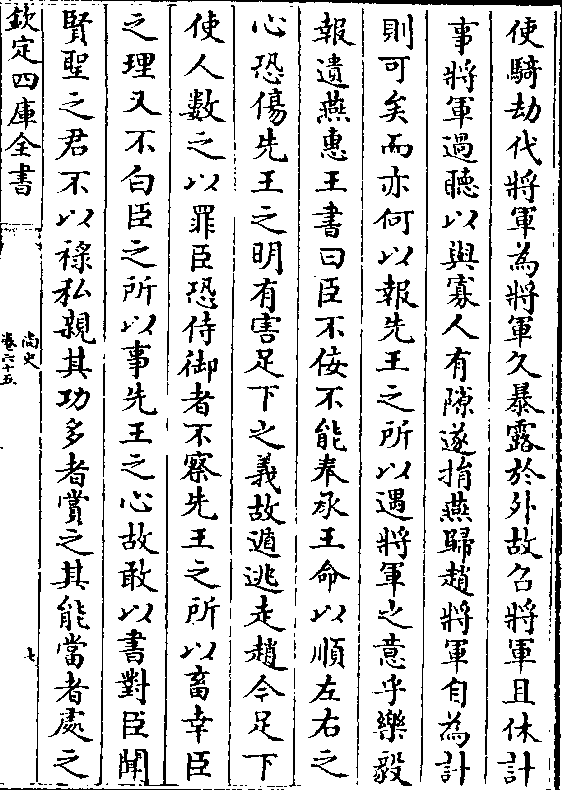 使騎劫代將軍為將軍久暴露於外故召將軍且休計
事將軍過聽以與寡人有隙遂捐燕歸趙將軍自為計
則可矣而亦何以報先王之所以遇將軍之意乎樂毅
報遺燕惠王書曰臣不佞不能奉承王命以順左右之
心恐傷先王之明有害足下之義故遁逃走趙今足下
使人數之以罪臣恐侍御者不察先王之所以畜幸臣
之理又不白臣之所以事先王之心故敢以書對臣聞
賢聖之君不以祿私親其功多者賞之其能當者處之
欽定四庫全書
尚史
卷六十五
七